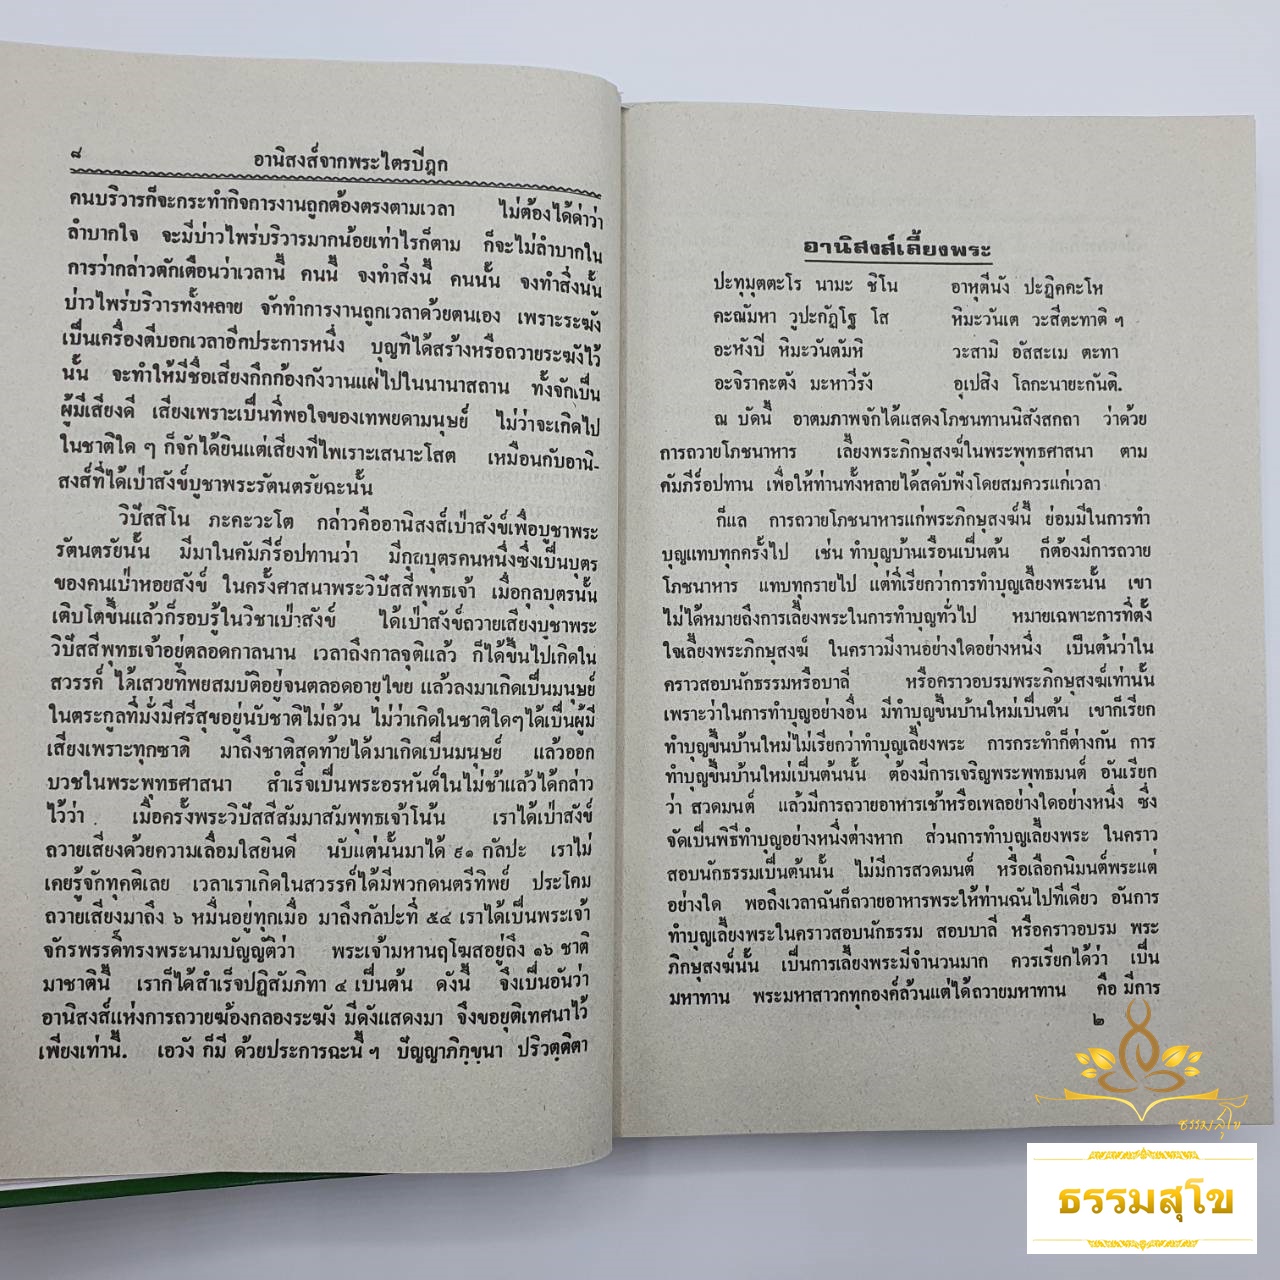 ๘ อานิสงส์จากพระไตรปิฎก
คนบริวารก็จะกระทำกิจการงานถูกต้องตรงตามเวลา ไม่ต้องได้ด่าว่า
ลำบากใจ จะมีบ่าวไพร่บริวารมากน้อยเท่าไรก็ตาม ก็จะไม่ลำบากใน
การว่ากล่าวตักเตือนว่าเวลานี้ คนนี้ จงทำสิ่งนี้ คนนั้น จงทำสิ่งนั้น
บ่าวไพร่บริวารทั้งหลาย จักทำการงานถูกเวลาด้วยตนเอง เพราะระฆัง
เป็นเครื่องตีบอกเวลาอีกประการหนึ่ง บุญที่ได้สร้างหรือถวายระฆังไว้
นั้น จะทำให้มีชื่อเสียงกึกก้องกังวานแผ่ไปในนานาสถาน ทั้งจักเป็น
ผู้มีเสียงดี เสียงเพราะเป็นที่พอใจของเทพยดามนุษย์ ไม่ว่าจะเกิดไป
ในชาติใด ๆ ก็จักได้ยินแต่เสียงที่ไพเราะเสนาะโสต เหมือนกับอานิ-
สงส์ที่ได้เป่าสังข์บูชาพระรัตนตรัยฉะนั้น
วิปัสสิโน ภะคะวะโต กล่าวคืออานิสงส์เป่าสังข์เพื่อบูชาพระ
รัตนตรัยนั้น มีมาในคัมภีร์อปทานว่า มีกุลบุตรคนหนึ่งซึ่งเป็นบุตร
ของคนเป่าหอยสังข์ ในครั้งศาสนาพระวิปัสสีพุทธเจ้า เมื่อกุลบุตรนั้น
เติบโตขึ้นแล้วก็รอบรู้ในวิชาเป่าสังข์ ได้เป่าสังข์ถวายเสียงบูชาพระ
วิปัสสีพุทธเจ้าอยู่ตลอดกาลนาน เวลาถึงกาลจุติแล้ว ก็ได้ขึ้นไปเกิดใน
สวรรค์ ได้เสวยทิพยสมบัติอยู่จนตลอดอายุไขย แล้วลงมาเกิดเป็นมนุษย์
ในตระกูลที่มั่งมีศรีสุขอยู่นับชาติไม่ถ้วน ไม่ว่าเกิดในชาติใดๆได้เป็นผู้มี
เสียงเพราะทุกชาติ มาถึงชาติสุดท้ายได้มาเกิดเป็นมนุษย์ แล้วออก
บวชในพระพุทธศาสนา สำเร็จเป็นพระอรหันต์ในไม่ช้าแล้วได้กล่าว
ไว้ว่า เมื่อครั้งพระวิปัสสีสัมมาสัมพุทธเจ้าโน้น เราได้เป่าสังข์
ถวายเสียงด้วยความเลื่อมใสยินดี นับแต่นั้นมาได้ ๙๑ กัลปะ เราไม่
เคยรู้จักทุคติเลย เวลาเราเกิดในสวรรค์ได้มีพวกดนตรีทิพย์ ประโคม
ถวายเสียงมาถึง ๖ หมื่นอยู่ทุกเมื่อ มาถึงกัลปะที่ ๕๔ เราได้เป็นพระเจ้า
จักรพรรดิ์ทรงพระนามบัญญัติว่า พระเจ้ามหานฤโฆสอยู่ถึง ๑๖ ชาติ
มาชาตินี้ เราก็ได้สำเร็จปฏิสัมภิทา ๔ เป็นต้น ดังนี้ จึงเป็นอันว่า
อานิสงส์แห่งการถวายฆ้องกลองระฆัง มีดังแสดงมา จึงขอยุติเทศนาไว้
เพียงเท่านี้. เอวัง ก็มี ด้วยประการฉะนี้ ฯ ปัญญาภิกฺขุนา ปริวตฺติตา
อานิสงส์เลี้ยงพระ
ปะทุมุตตะโร นามะ ชิโน อาหุตีนัง ปะฏิคคะโห
คะณัมหา วูปะกัฏโฐ โส หิมะวันเต วะสีตะทาติ ฯ
อะหังปิ หิมะวันตัมหิ วะสามิ อัสสะเม ตะทา
อะจิราคะตัง มะหาวีรัง อุเปสิง โลกะนายะกันติ.
ณ บัดนี้ อาตมภาพจักได้แสดงโภชนทานนิสังสกถา ว่าด้วย
การถวายโภชนาหาร เลี้ยงพระภิกษุสงฆ์ในพระพุทธศาสนา ตาม
คัมภีร์อปทาน เพื่อให้ท่านทั้งหลายได้สดับฟังโดยสมควรแก่เวลา
ก็แล การถวายโภชนาหารแก่พระภิกษุสงฆ์นี้ ย่อมมีในการทำ
บุญแทบทุกครั้งไป เช่น ทำบุญบ้านเรือนเป็นต้น ก็ต้องมีการถวาย
โภชนาหาร แทบทุกรายไป แต่ที่เรียกว่าการทำบุญเลี้ยงพระนั้น เขา
ไม่ได้หมายถึงการเลี้ยงพระในการทำบุญทั่วไป หมายเฉพาะการที่ตั้ง
ใจเลี้ยงพระภิกษุสงฆ์ ในคราวมีงานอย่างใดอย่างหนึ่ง เป็นต้นว่าใน
คราวสอบนักธรรมหรือบาลี หรือคราวอบรมพระภิกษุสงฆ์เท่านั้น
เพราะว่าในการทำบุญอย่างอื่น มีทำบุญขึ้นบ้านใหม่เป็นต้น เขาก็เรียก
ทำบุญขึ้นบ้านใหม่ไม่เรียกว่าทำบุญเลี้ยงพระ การกระทำก็ต่างกัน การ
ทำบุญขึ้นบ้านใหม่เป็นต้นนั้น ต้องมีการเจริญพระพุทธมนต์ อันเรียก
ว่า สวดมนต์ แล้วมีการถวายอาหารเช้าหรือเพลอย่างใดอย่างหนึ่ง ซึ่ง
จัดเป็นพิธีทำบุญอย่างหนึ่งต่างหาก ส่วนการทำบุญเลี้ยงพระ ในคราว
สอบนักธรรมเป็นต้นนั้น ไม่มีการสวดมนต์ หรือเลือกนิมนต์พระแต่
อย่างใด พอถึงเวลาฉันก็ถวายอาหารพระให้ท่านฉันไปทีเดียว อันการ
ทำบุญเลี้ยงพระในคราวสอบนักธรรม สอบบาลี หรือคราวอบรม พระ
ภิกษุสงฆ์นั้น เป็นการเลี้ยงพระมีจำนวนมาก ควรเรียกได้ว่า เป็น
มหาทาน พระมหาสาวกทุกองค์ล้วนแต่ได้ถวายมหาทาน คือ มีการ
๒
ธรรมสุโข
ธรรมสุโข